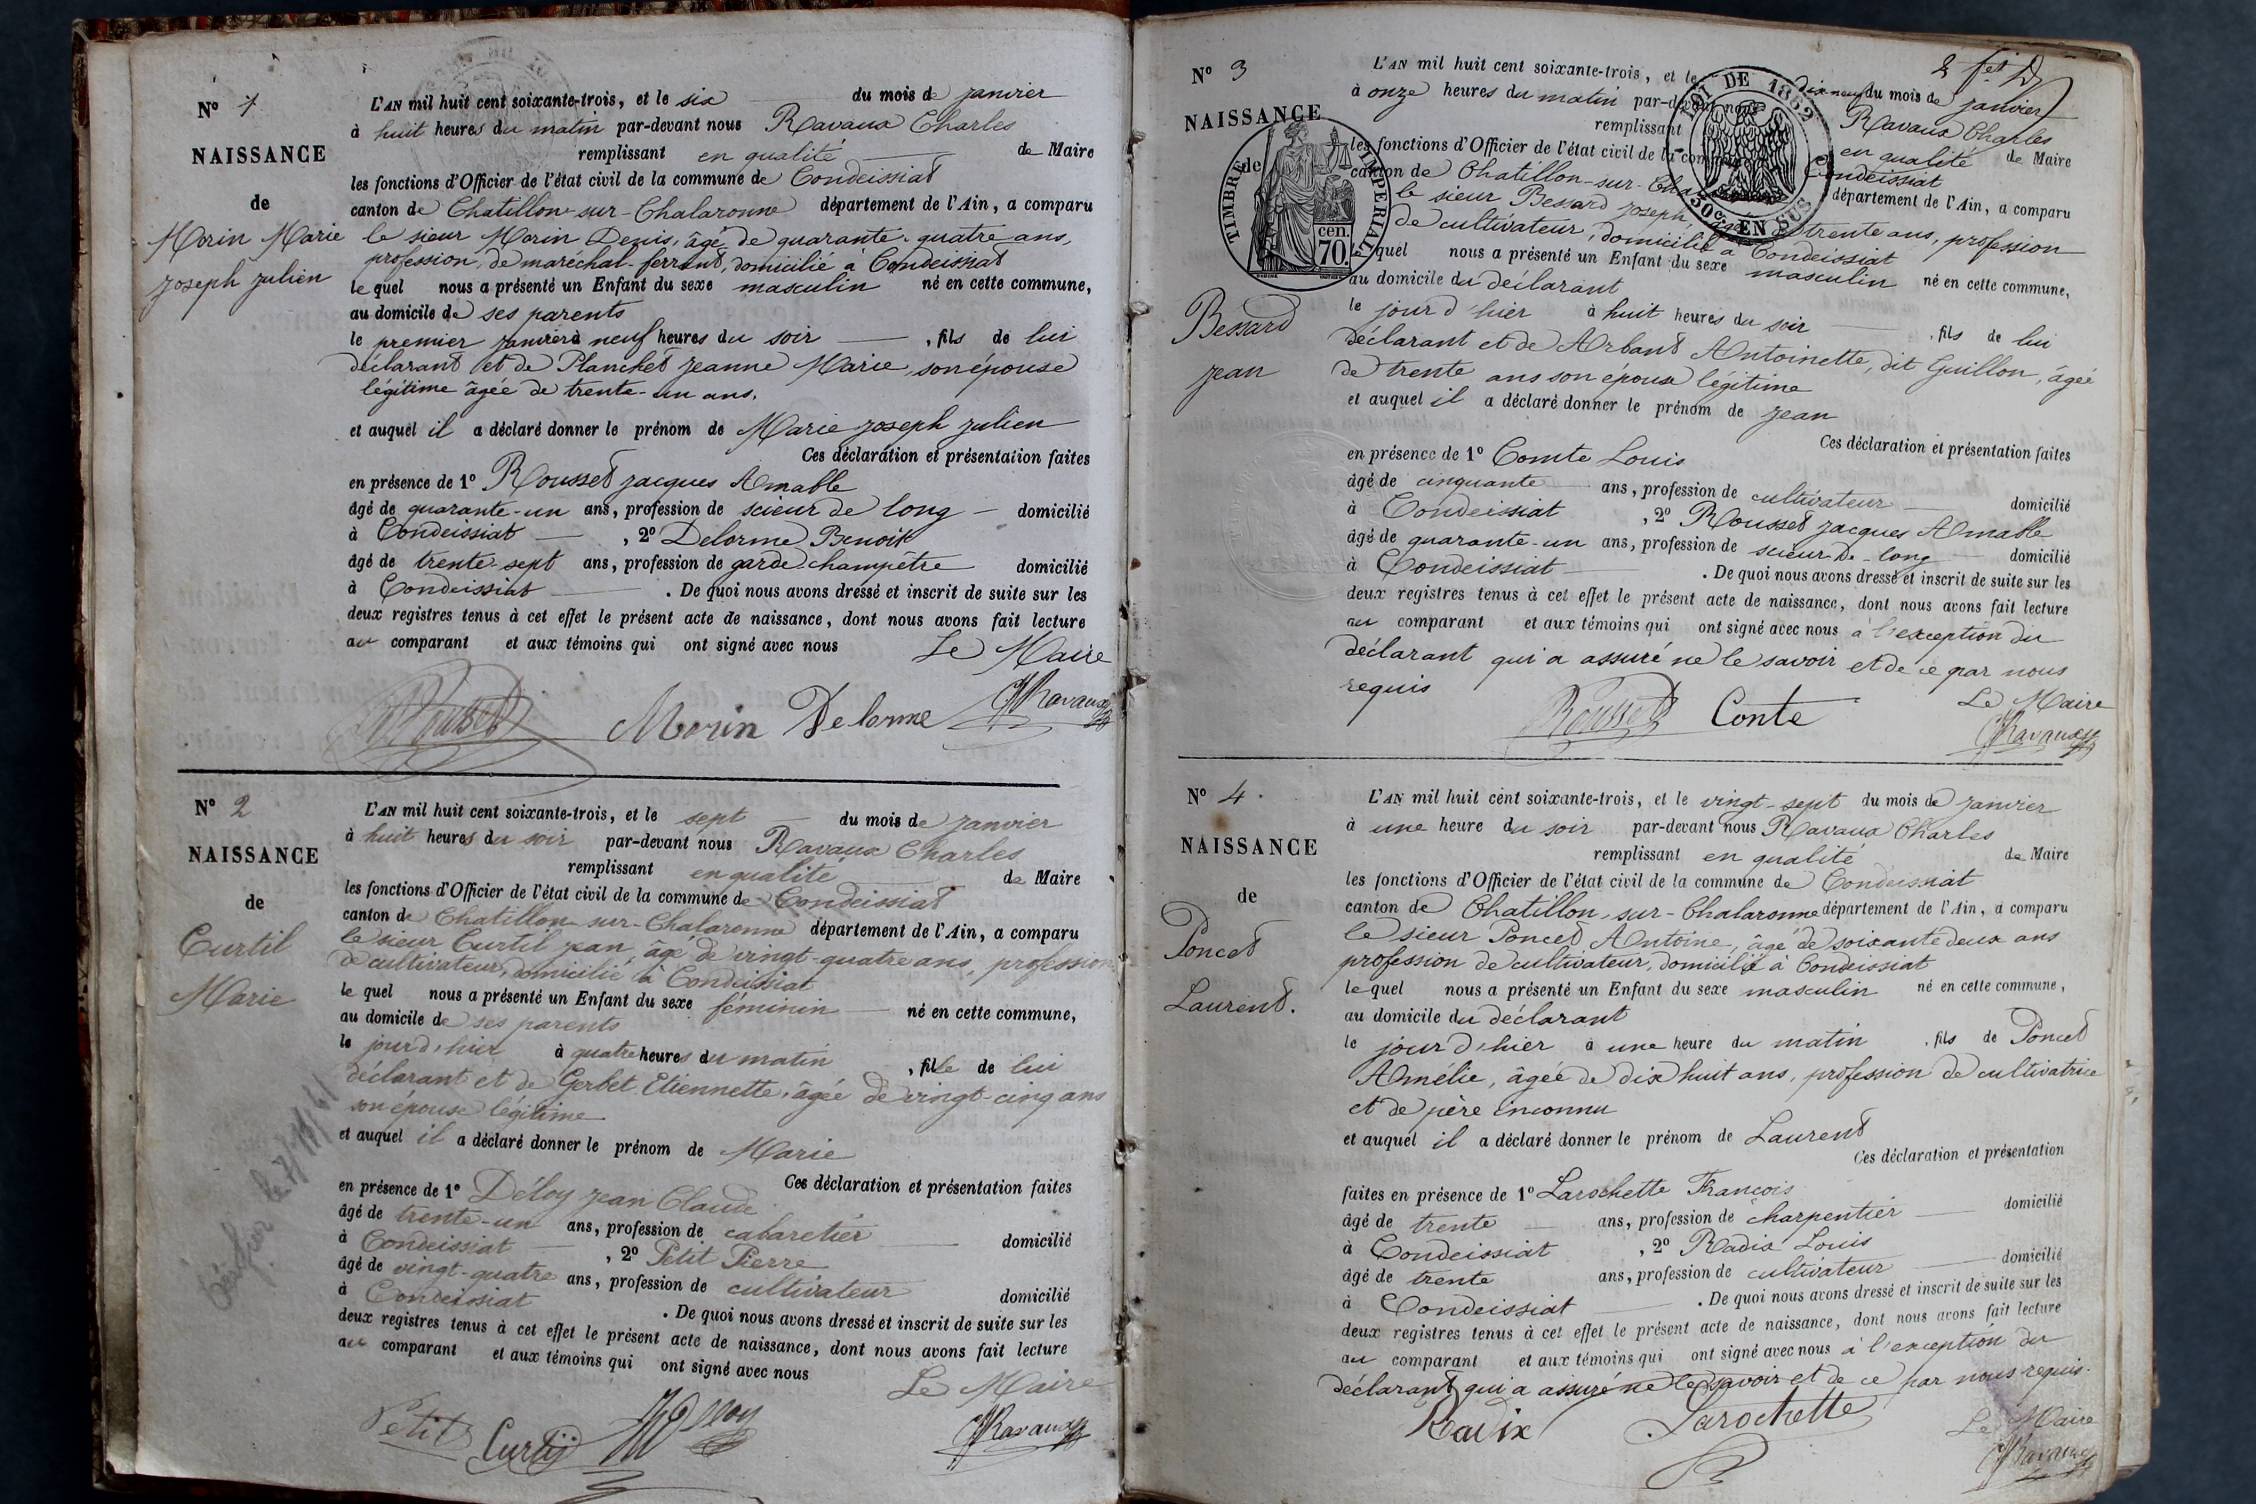 N° 1
NAISSANCE
de
Morin Marie
Joseph Julien
L'AN mil huit cent soixante-trois, et le six du mois de janvier
à huit heures du matin par-devant nous Ravaux Charles
remplissant en qualité de Maire
les fonctions d'Officier de l'état civil de la commune de Condeissiat
canton de Chatillon-sur-Chalaronne département de l'Ain, a comparu
le sieur Morin Denis, âgé de quarante-quatre ans,
profession de maréchal-ferrant, domicilié à Condeissiat
lequel nous a présenté un Enfant du sexe masculin né en cette commune,
au domicile de ses parents
le premier janvier à neuf heures du soir, fils de lui
déclarant et de Planchet Jeanne Marie, son épouse
légitime âgée de trente-un ans,
et auquel il a déclaré donner le prénom de Marie Joseph Julien
Ces déclaration et présentation faites
en présence de 1° Rousset Jacques Amable
âgé de quarante-un ans, profession de scieur de long domicilié
à Condeissiat, 2° Delorme Benoit
âgé de trente-sept ans, profession de garde champêtre domicilié
à Condeissiat. De quoi nous avons dressé et inscrit de suite sur les
deux registres tenus à cet effet le présent acte de naissance, dont nous avons fait lecture
au comparant et aux témoins qui ont signé avec nous
Le Maire
Rousset Morin Delorme Ravaux
N° 2
NAISSANCE
de
Curtil
Marie
L'AN mil huit cent soixante-trois, et le sept du mois de janvier
à huit heures du soir par-devant nous Ravaux Charles
remplissant en qualité de Maire
les fonctions d'Officier de l'état civil de la commune de Condeissiat
canton de Chatillon-sur-Chalaronne département de l'Ain, a comparu
le sieur Curtil Jean, âgé de vingt-quatre ans, profession
de cultivateur, domicilié à Condeissiat
lequel nous a présenté un Enfant du sexe féminin né en cette commune,
au domicile de ses parents
le jour d'hier à quatre heures du matin, fille de lui
déclarant et de Gerbet Etiennette, âgée de vingt-cinq ans
son épouse légitime
et auquel il a déclaré donner le prénom de Marie
Ces déclaration et présentation faites
en présence de 1° Déloy Jean Claude
âgé de trente-un ans, profession de cabaretier domicilié
à Condeissiat, 2° Petit Pierre
âgé de vingt-quatre ans, profession de cultivateur domicilié
à Condeissiat. De quoi nous avons dressé et inscrit de suite sur les
deux registres tenus à cet effet le présent acte de naissance, dont nous avons fait lecture
au comparant et aux témoins qui ont signé avec nous
Le Maire
Petit Curtil Ravaux
2 fet
N° 3
NAISSANCE
de
TIMBRE IMPERIAL
cen. 70.
LOI DE 1862
50 c. EN SUS
Bessard
Jean
L'AN mil huit cent soixante-trois, et le dix-neuf du mois de janvier
à onze heures du matin par-devant nous Ravaux Charles
remplissant en qualité de Maire
les fonctions d'Officier de l'état civil de la commune Condeissiat
canton de Chatillon-sur-Cha département de l'Ain, a comparu
le sieur Bessard Joseph trente ans, profession
de cultivateur, domicilié à Condeissiat
lequel nous a présenté un Enfant du sexe masculin né en cette commune,
au domicile du déclarant
le jour d'hier à huit heures du soir, fils de lui
déclarant et de Arbant Antoinette, dit Guillon, âgée
de trente ans son épouse légitime
et auquel il a déclaré donner le prénom de Jean
Ces déclaration et présentation faites
en présence de 1° Comte Louis
âgé de cinquante ans, profession de cultivateur domicilié
à Condeissiat, 2° Rousset Jacques Amable
âgé de quarante-un ans, profession de scieur-de-long domicilié
à Condeissiat. De quoi nous avons dressé et inscrit de suite sur les
deux registres tenus à cet effet le présent acte de naissance, dont nous avons fait lecture
au comparant et aux témoins qui ont signé avec nous à l'exception du
déclarant qui a assuré ne le savoir et de ce par nous
requis
Le Maire
Rousset Conte Ravaux
N° 4.
NAISSANCE
de
Poncet
Laurent.
L'AN mil huit cent soixante-trois, et le vingt-sept du mois de janvier
à une heure du soir par-devant nous Ravaux Charles
remplissant en qualité de Maire
les fonctions d'Officier de l'état civil de la commune de Condeissiat
canton de Chatillon-sur-Chalaronne département de l'Ain, a comparu
le sieur Poncet Antoine, âgé de soixante deux ans
profession de cultivateur, domicilié à Condeissiat
lequel nous a présenté un Enfant du sexe masculin né en cette commune,
au domicile du déclarant
le jour d'hier à une heure du matin, fils de Poncet
Amélie, âgée de dix huit ans, profession de cultivatrice
et de père inconnu
et auquel il a déclaré donner le prénom de Laurent
Ces déclaration et présentation
faites en présence de 1° Larochette François
âgé de trente ans, profession de charpentier domicilié
à Condeissiat, 2° Radix Louis
âgé de trente ans, profession de cultivateur domicilié
à Condeissiat. De quoi nous avons dressé et inscrit de suite sur les
deux registres tenus à cet effet le présent acte de naissance, dont nous avons fait lecture
au comparant et aux témoins qui ont signé avec nous à l'exception du
déclarant qui a assuré ne le savoir et de ce par nous requis.
Le Maire
Radix Larochette Ravaux